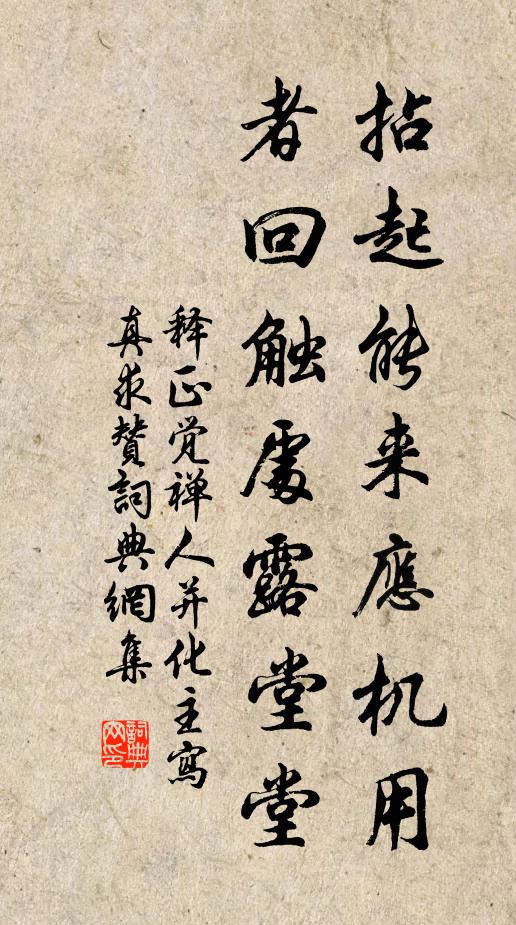 拈起能来應机用
者回触處露堂堂
释正觉禅人并化主寫
真求赞詞典網集
詞典网印